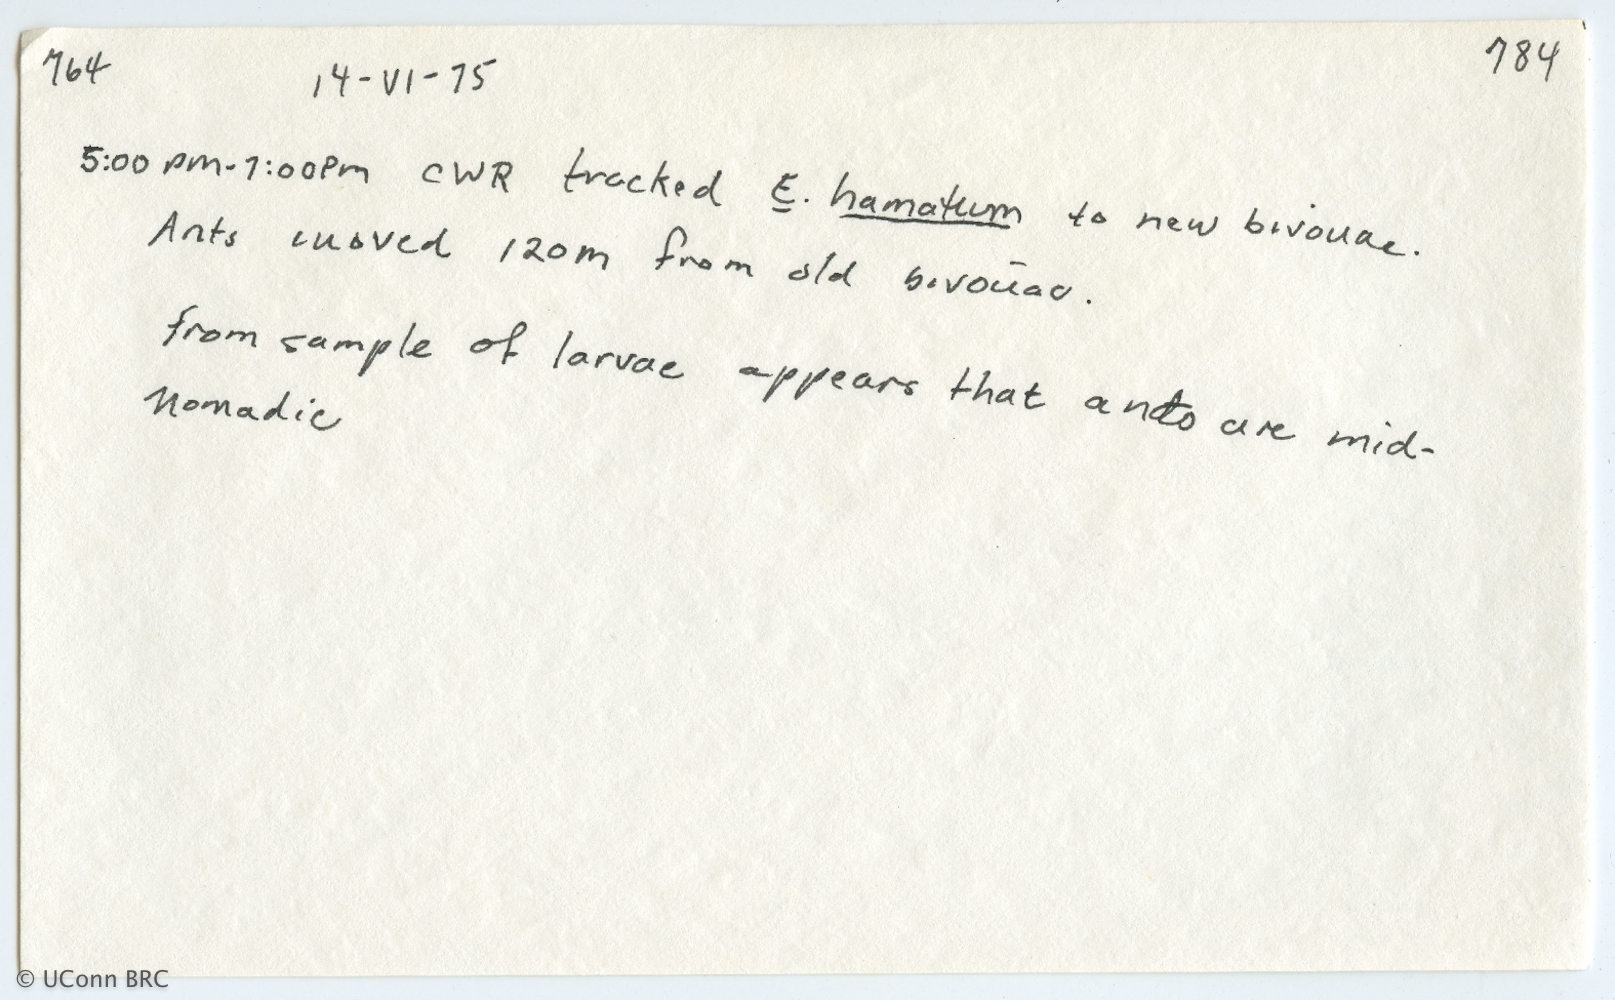 764 14-VI-75 784
5:00 pm-7:00Pm CWR tracked E. hamatum to new bivouac.
Ants moved 120m from old bivouac.
from sample of larvae appears that ants are mid-
Nomadic
© UConn BRC